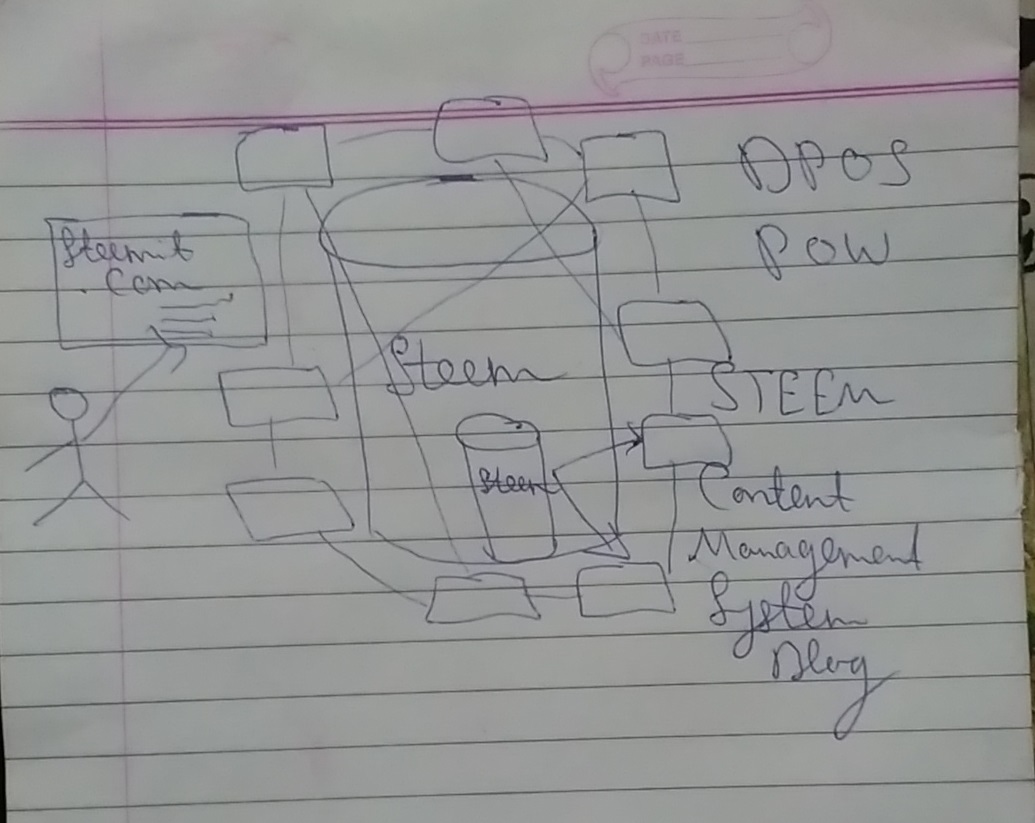 DATE
PAGE
DPOS
POW
Steemit
.Com
Steem
STEEM
Steem
Content
Management
System
Blog